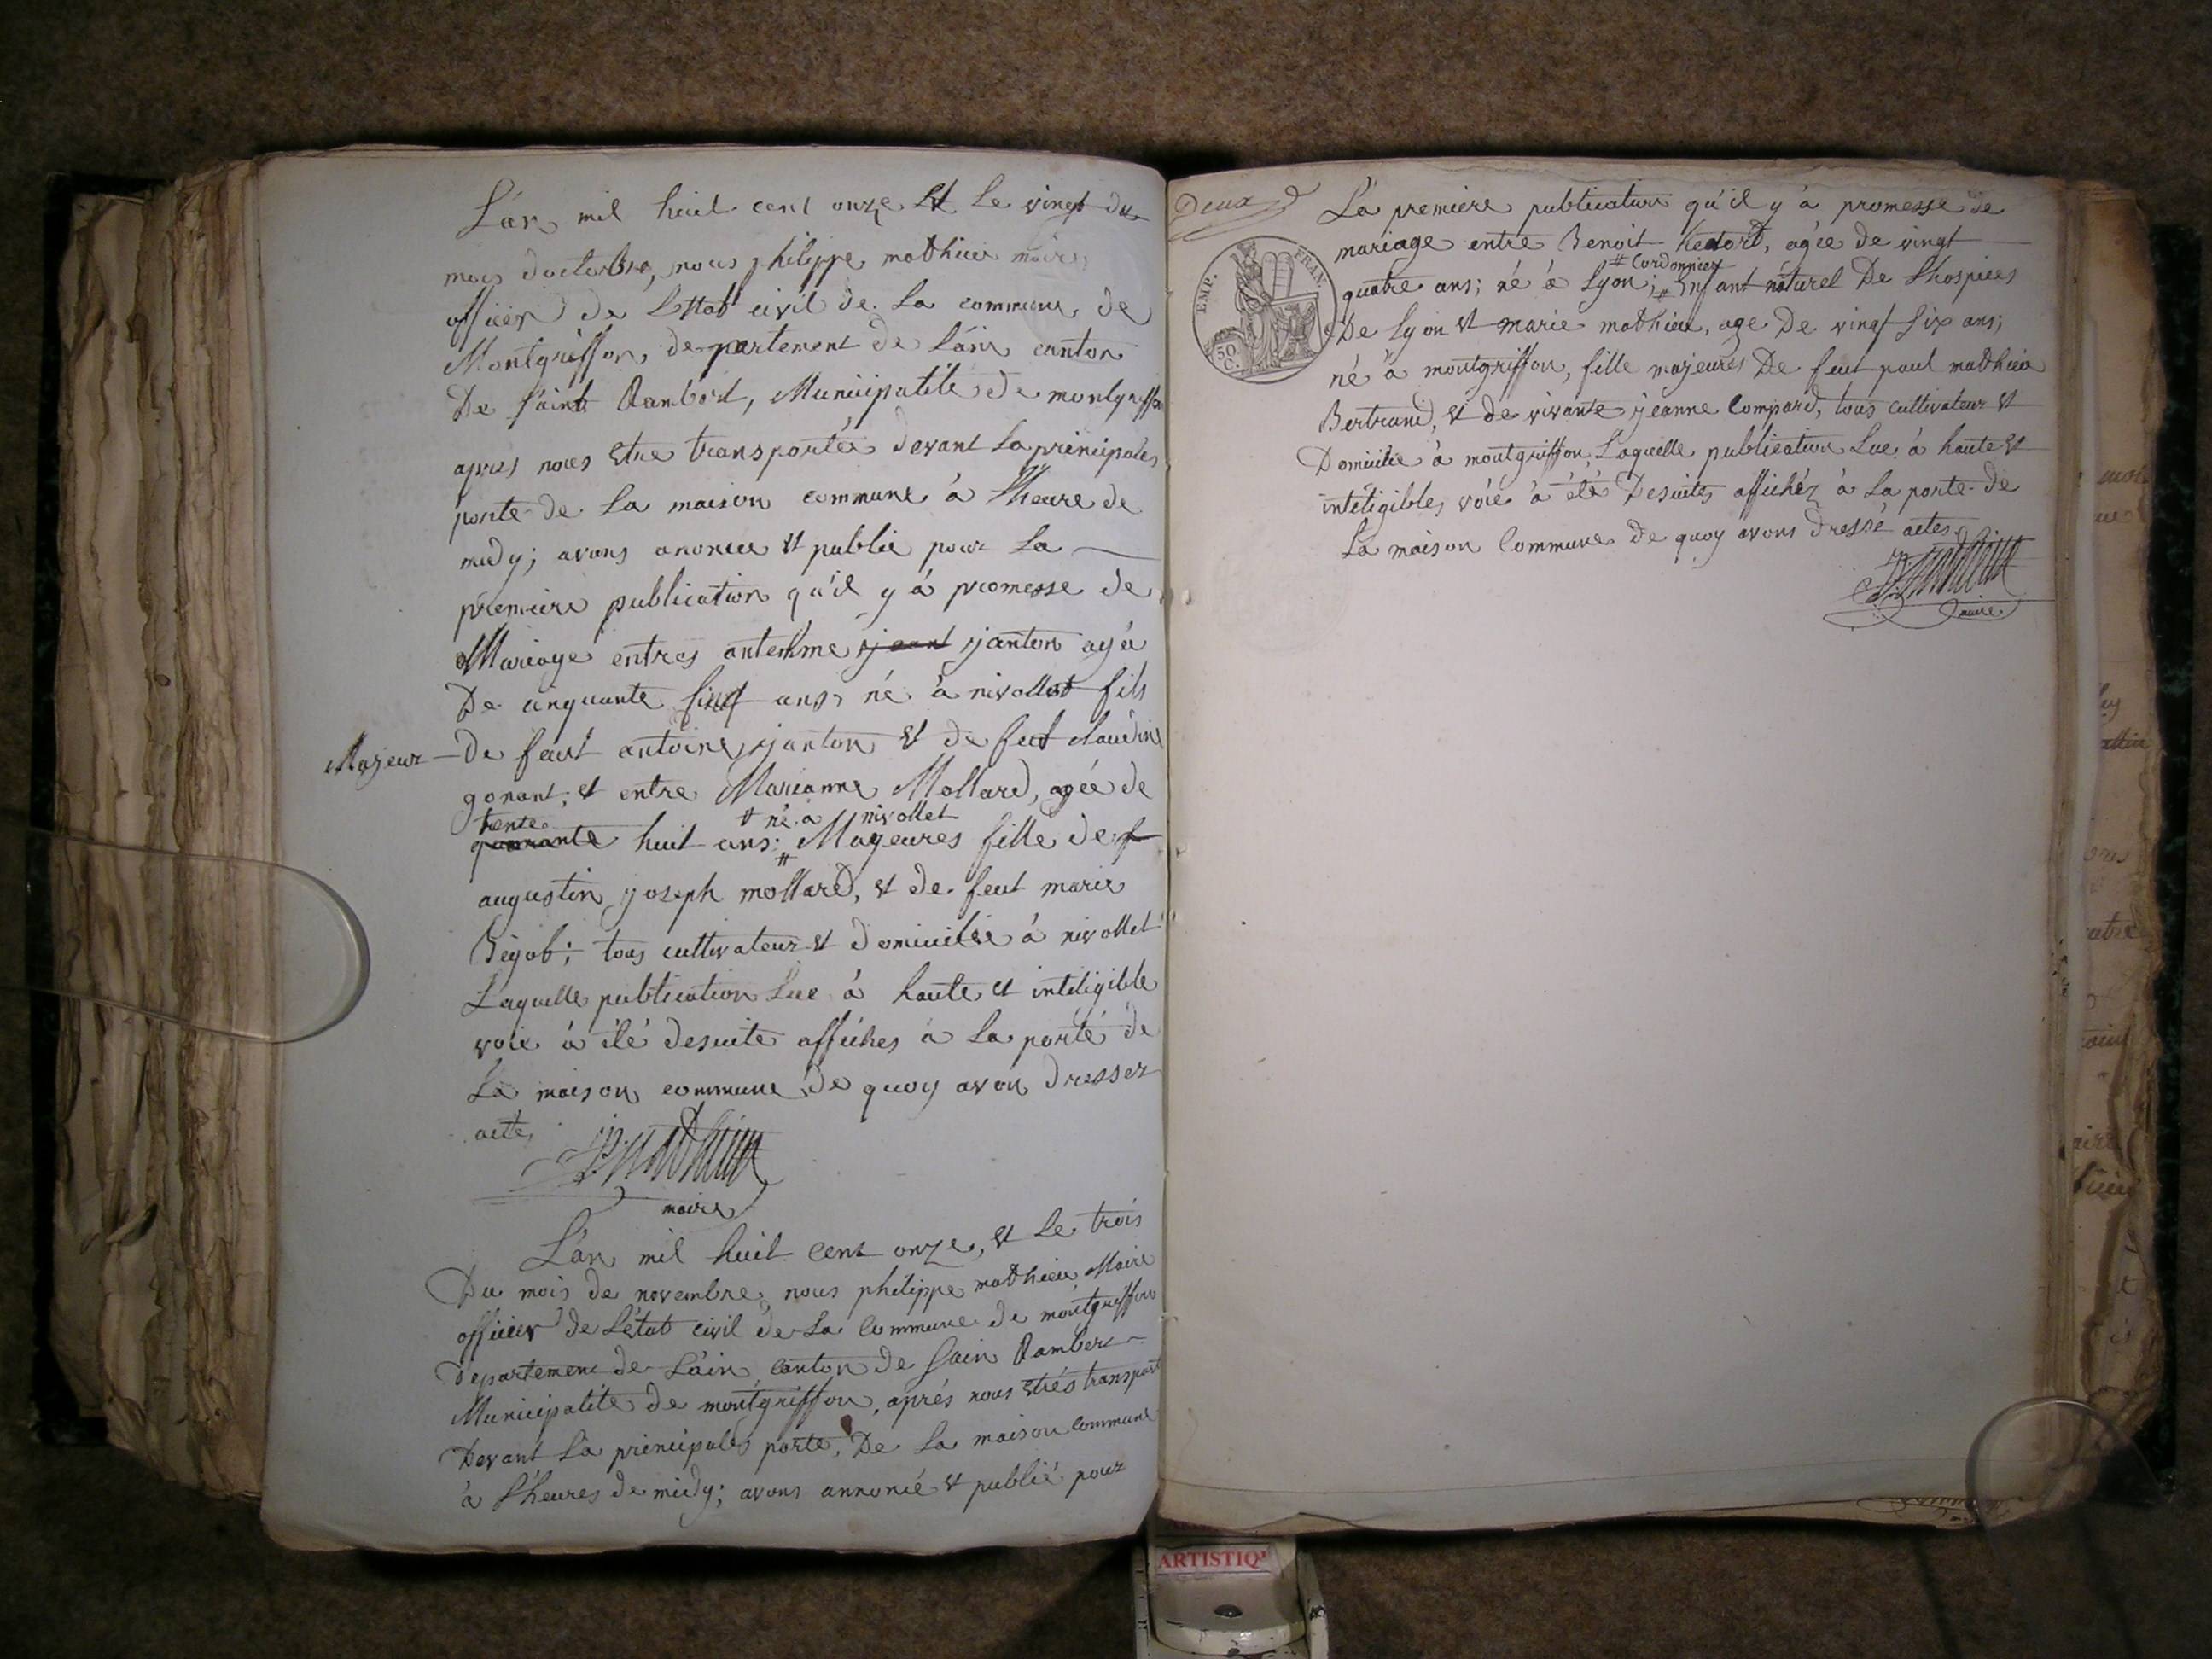 L'an mil huit cent onze Et Le vingt du
mois doctobre, nous philippe mathieu maire
officier de Lettat civil de La commune de
Montgriffon, departement de L'ain canton
De saint Rambert, Municipalité de montgriffon
apres nous Etre transportée devant La principales
porte de La maison commune à L'heure de
midy; avons anoncee et publie pour La
premiere publication qu'il y à promesse de
Mariage entres antelme janton agée
De cinquante sinq ans, né à nivollet fils
Majeur De feut antoine janton et de feut claudine
gonant; et entre Marianne Mollard, agée de
trente # né a nivollet
quarante huit ans; # Mayeures fille de f
augustin joseph mollard, et de feut marie
Bégot; tous cultivateur et domicilée à nivollet
Laquelle publication Lue à haute et inteligible
voie à été desuite affiches à La porte de
La maison commune de quoy avon dresser
acte,
P. Mathieu
maire
L'an mil huit cent onze, et Le trois
Du mois de novembre, nous philippe mathieu Maire
officier de L'état civil de La Commune de montgriffon
Departement de L'ain, canton de sain Rambert
Municipalité de montgriffon, aprés nous Etrés transport
Devant La principales porte, De La maison commune
à L'heures de midy; avons annoncé et publié pour
Deux
EMP. FRAN.
50 C.
La premiere publication qu'il y à promesse de
mariage entre Benoit hedord, agée de vingt
# Cordonnier
quatre ans; né à Lyon; # Enfant naturel De L'hospices
De Lyon et marie mathieu, age De vingt six ans;
né à montgriffon, fille majeures De feut paul mathieu
Bertrand, et de vivante jeanne Compard, tous cultivateur et
Domicilié à montgriffon, Laquelle publication Lue à haute et
intéligibles voie à été Desuites affichéz à La porte de
La maison Commune de quoy avons dressé actes
P. Mathieu
maire
ARTISTIQ